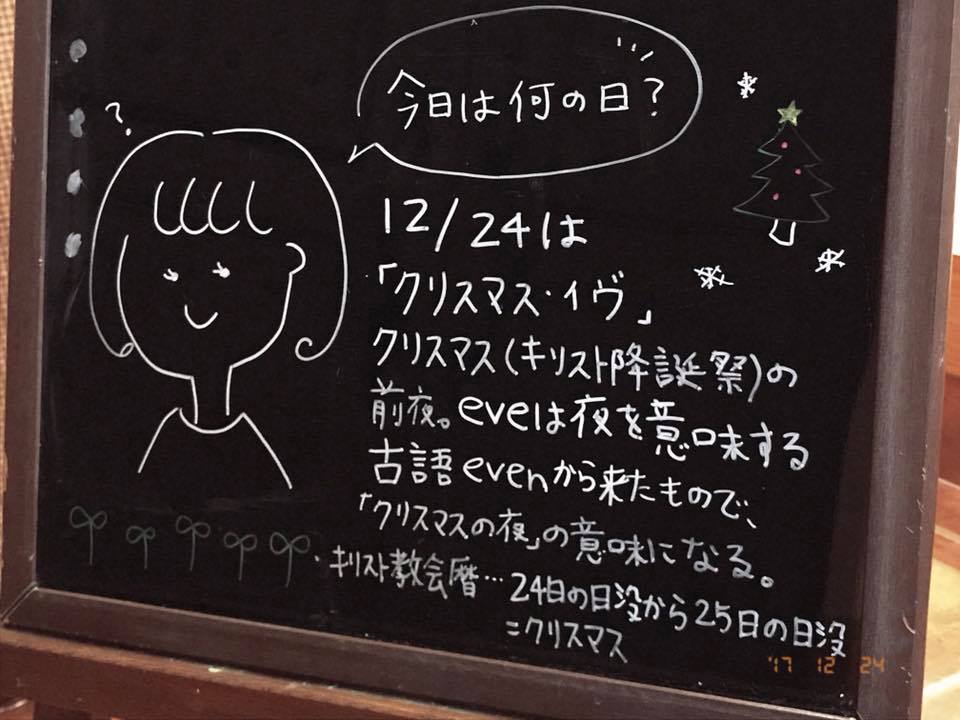 今日は何の日？
?
12/24は
「クリスマス・イヴ」
クリスマス(キリスト降誕祭)の
前夜。eveは夜を意味する
古語evenから来たもので、
「クリスマスの夜」の意味になる。
・キリスト教会暦…24日の日没から25日の日没
=クリスマス
'17 12 24